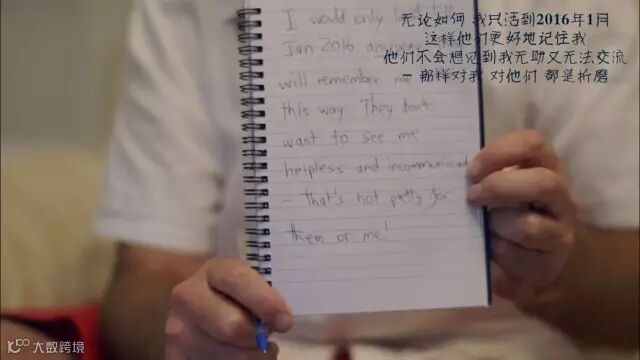 I would only
Jan 2016 anyway
will remember me
this way They don't
want to see me
helpless and incommunicad
- that's not pretty for
them or me!
无论如何 我只活到2016年1月
这样他们更好地记住我
他们不会想见到我无助又无法交流
- 那样对我 对他们 都是折磨
大数跨境